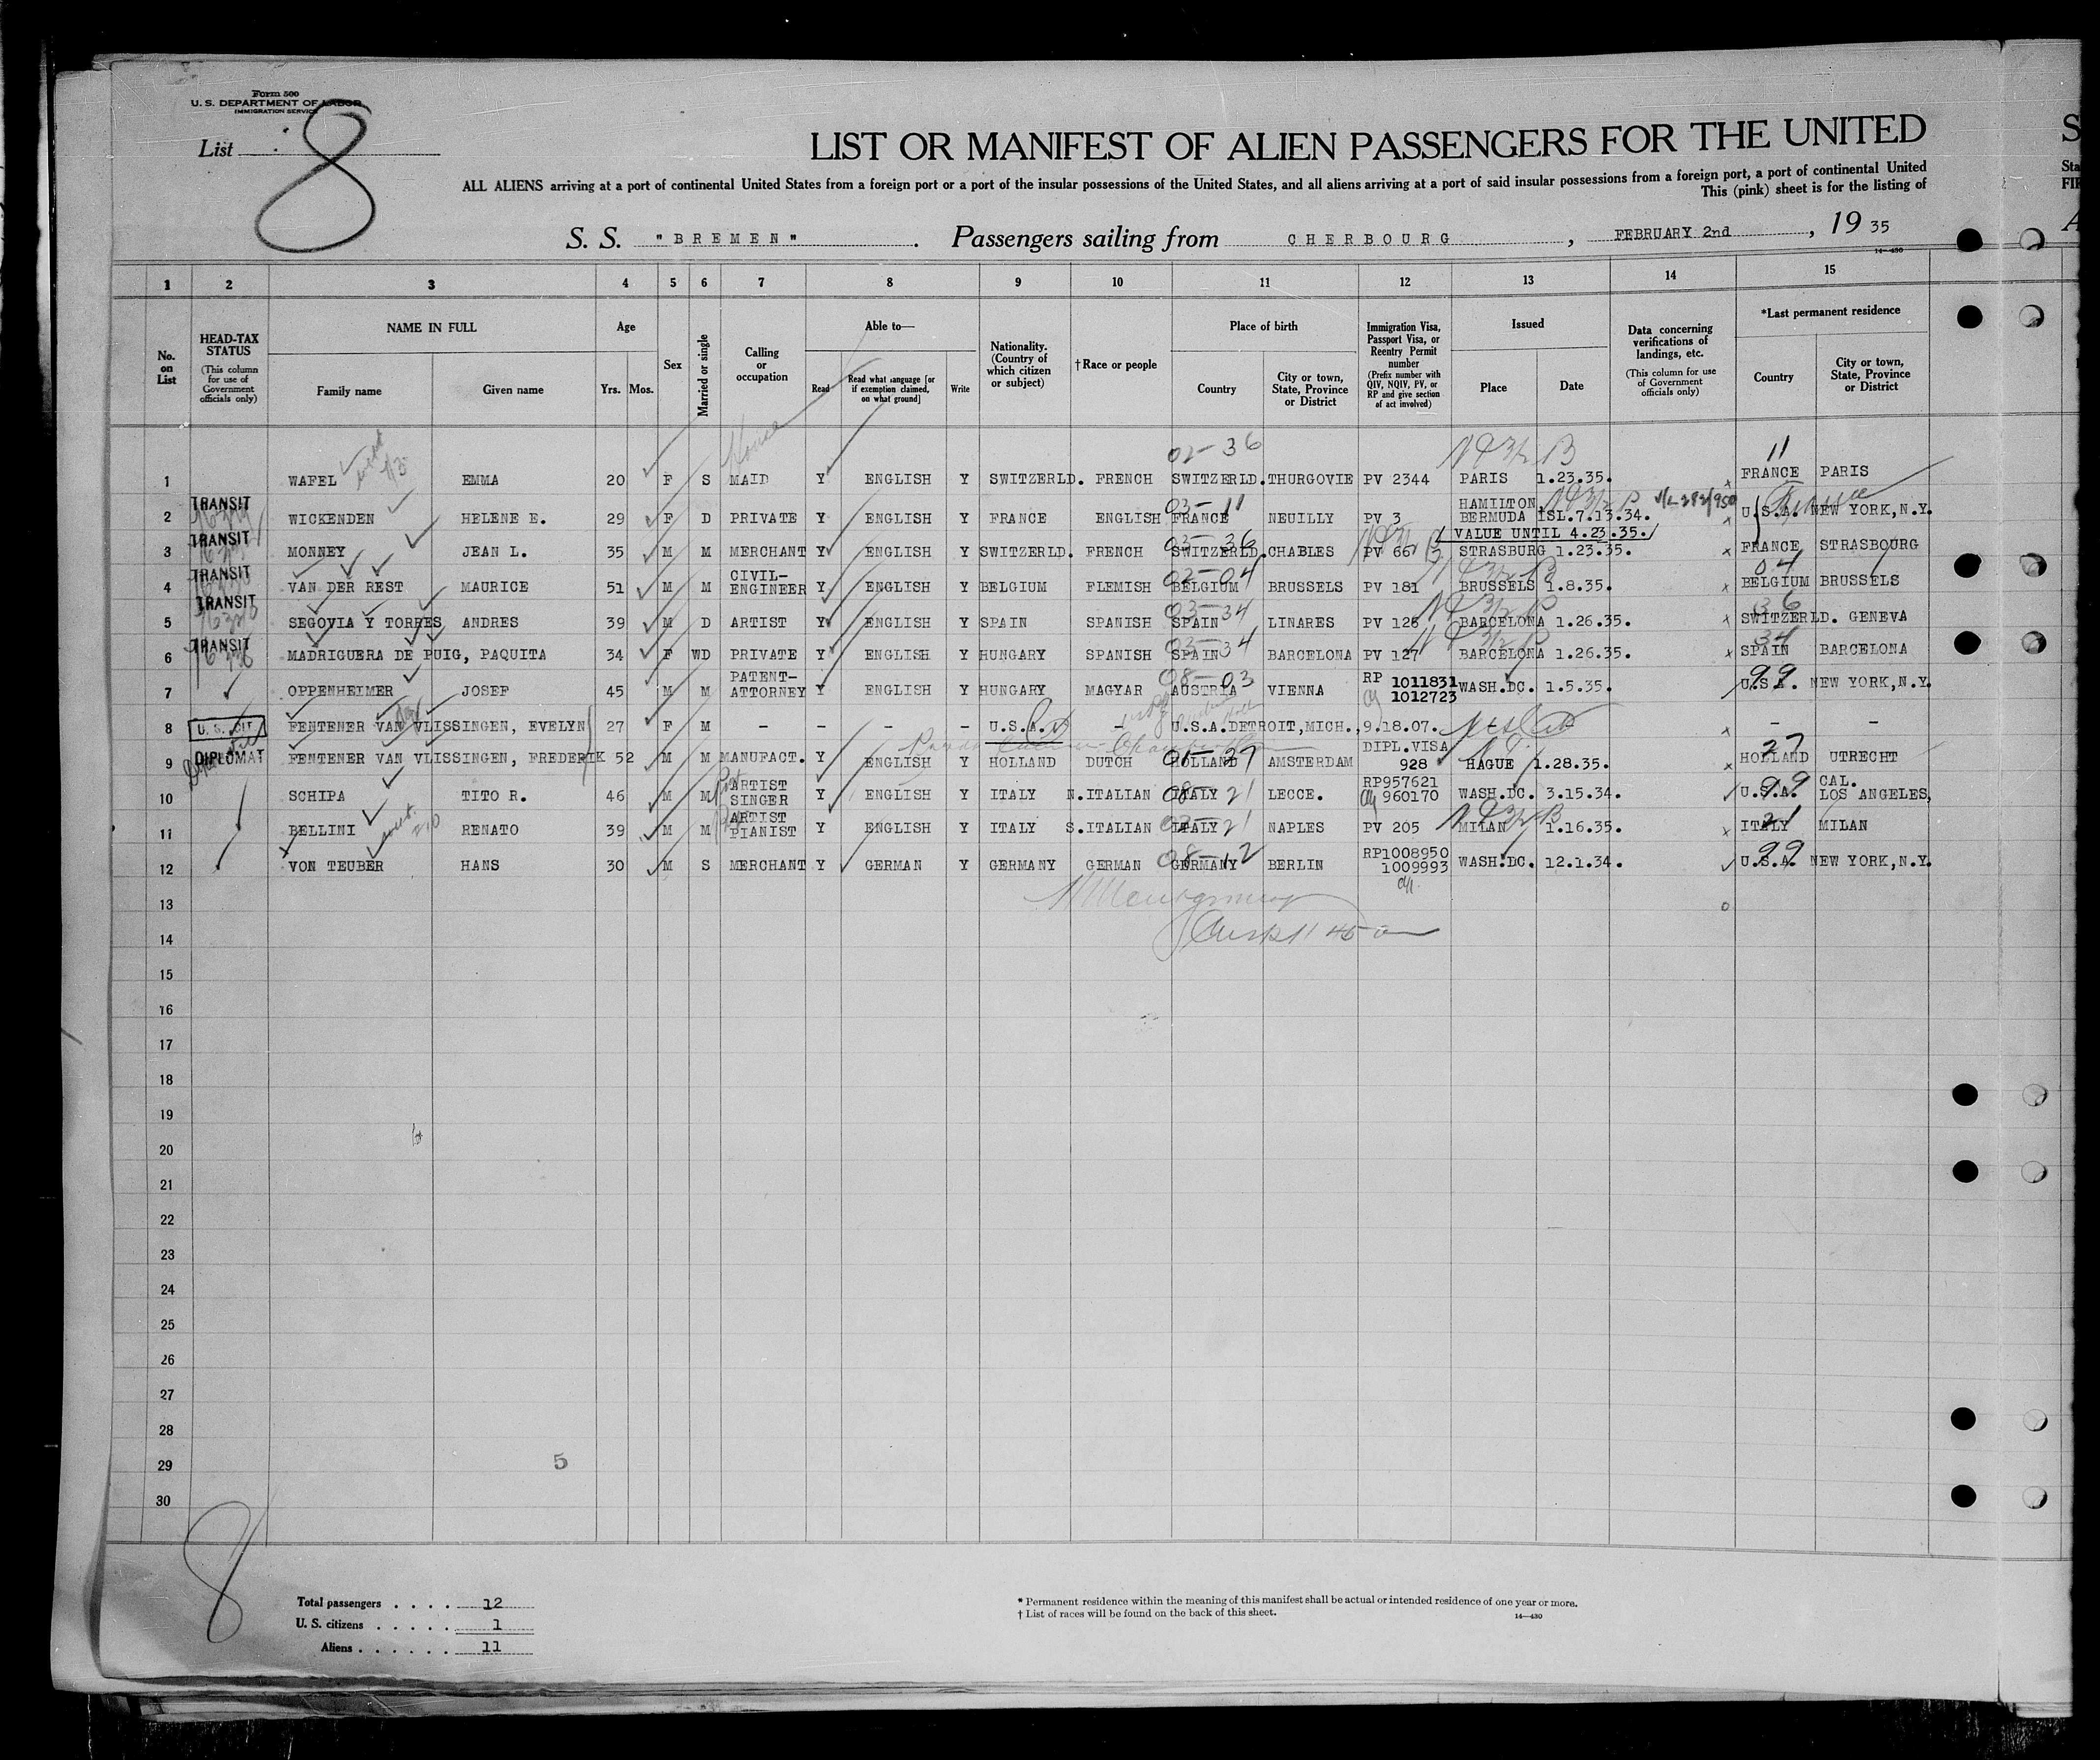 Form 500
U. S. DEPARTMENT OF LABOR
IMMIGRATION SERVICE
List 8
LIST OR MANIFEST OF ALIEN PASSENGERS FOR THE UNITED
ALL ALIENS arriving at a port of continental United States from a foreign port or a port of the insular possessions of the United States, and all aliens arriving at a port of said insular possessions from a foreign port, a port of continental United
This (pink) sheet is for the listing of
S. S. "BREMEN". Passengers sailing from CHERBOURG, FEBRUARY 2nd, 1935
14-430
1 2 3 4 5 6 7 8 9 10 11 12 13 14 15
No. on List
HEAD-TAX STATUS (This column for use of Government officials only)
NAME IN FULL Family name Given name
Age Yrs. Mos.
Sex
Married or single
Calling or occupation
Able to— Read Read what language [or if exemption claimed, on what ground] Write
Nationality. (Country of which citizen or subject)
†Race or people
Place of birth Country City or town, State, Province or District
Immigration Visa, Passport Visa, or Reentry Permit number (Prefix number with QIV, NQIV, PV, or RP and give section of act involved)
Issued Place Date
Data concerning verifications of landings, etc. (This column for use of Government officials only)
*Last permanent residence Country City or town, State, Province or District
02-36 11
1 WAFEL EMMA 20 F S House MAID Y ENGLISH Y SWITZERLD. FRENCH SWITZERLD. THURGOVIE PV 2344 PARIS 1.23.35. FRANCE PARIS
03-11
2 TRANSIT WICKENDEN HELENE E. 29 F D PRIVATE Y ENGLISH Y FRANCE ENGLISH FRANCE NEUILLY PV 3 HAMILTON BERMUDA ISL. 7.13.34. U.S.A. NEW YORK, N.Y.
VALUE UNTIL 4.23.35.
03-36
3 TRANSIT MONNEY JEAN L. 35 M M MERCHANT Y ENGLISH Y SWITZERLD. FRENCH SWITZERLD. CHABLES PV 667 STRASBURG 1.23.35. FRANCE STRASBOURG
02-04 04
4 TRANSIT VAN DER REST MAURICE 51 M M CIVIL-ENGINEER Y ENGLISH Y BELGIUM FLEMISH BELGIUM BRUSSELS PV 181 BRUSSELS 1.8.35. BELGIUM BRUSSELS
03-34 36
5 TRANSIT SEGOVIA Y TORRES ANDRES 39 M D ARTIST Y ENGLISH Y SPAIN SPANISH SPAIN LINARES PV 126 BARCELONA 1.26.35. SWITZERLD. GENEVA
03-34 34
6 TRANSIT MADRIGUERA DE PUIG, PAQUITA 34 F WD PRIVATE Y ENGLISH Y HUNGARY SPANISH SPAIN BARCELONA PV 127 BARCELONA 1.26.35. SPAIN BARCELONA
08-03 99
7 OPPENHEIMER JOSEF 45 M M PATENT-ATTORNEY Y ENGLISH Y HUNGARY MAGYAR AUSTRIA VIENNA RP 1011831 1012723 WASH.DC. 1.5.35. U.S.A. NEW YORK, N.Y.
8 U. S. CIT FENTENER VAN VLISSINGEN, EVELYN 27 F M - - - U.S.A. - U.S.A. DETROIT, MICH., 9.18.07. - -
01-27 27
9 DIPLOMAT FENTENER VAN VLISSINGEN, FREDERIK 52 M M MANUFACT. Y ENGLISH Y HOLLAND DUTCH HOLLAND AMSTERDAM DIPL.VISA 928 HAGUE 1.28.35. HOLLAND UTRECHT
08-21 99
10 SCHIPA TITO R. 46 M M ARTIST SINGER Y ENGLISH Y ITALY N.ITALIAN ITALY LECCE. RP957621 960170 WASH.DC. 3.15.34. U.S.A. CAL. LOS ANGELES,
21
11 BELLINI RENATO 39 M M ARTIST PIANIST Y ENGLISH Y ITALY S.ITALIAN ITALY NAPLES PV 205 MILAN 1.16.35. ITALY MILAN
08-12 99
12 VON TEUBER HANS 30 M S MERCHANT Y GERMAN Y GERMANY GERMAN GERMANY BERLIN RP1008950 1009993 WASH.DC. 12.1.34. U.S.A. NEW YORK, N.Y.
13
14
15
16
17
18
19
20
21
22
23
24
25
26
27
28
29
5
30
8
Total passengers . . . . 12
U. S. citizens . . . . . 1
Aliens . . . . . . 11
* Permanent residence within the meaning of this manifest shall be actual or intended residence of one year or more.
† List of races will be found on the back of this sheet.
14-430